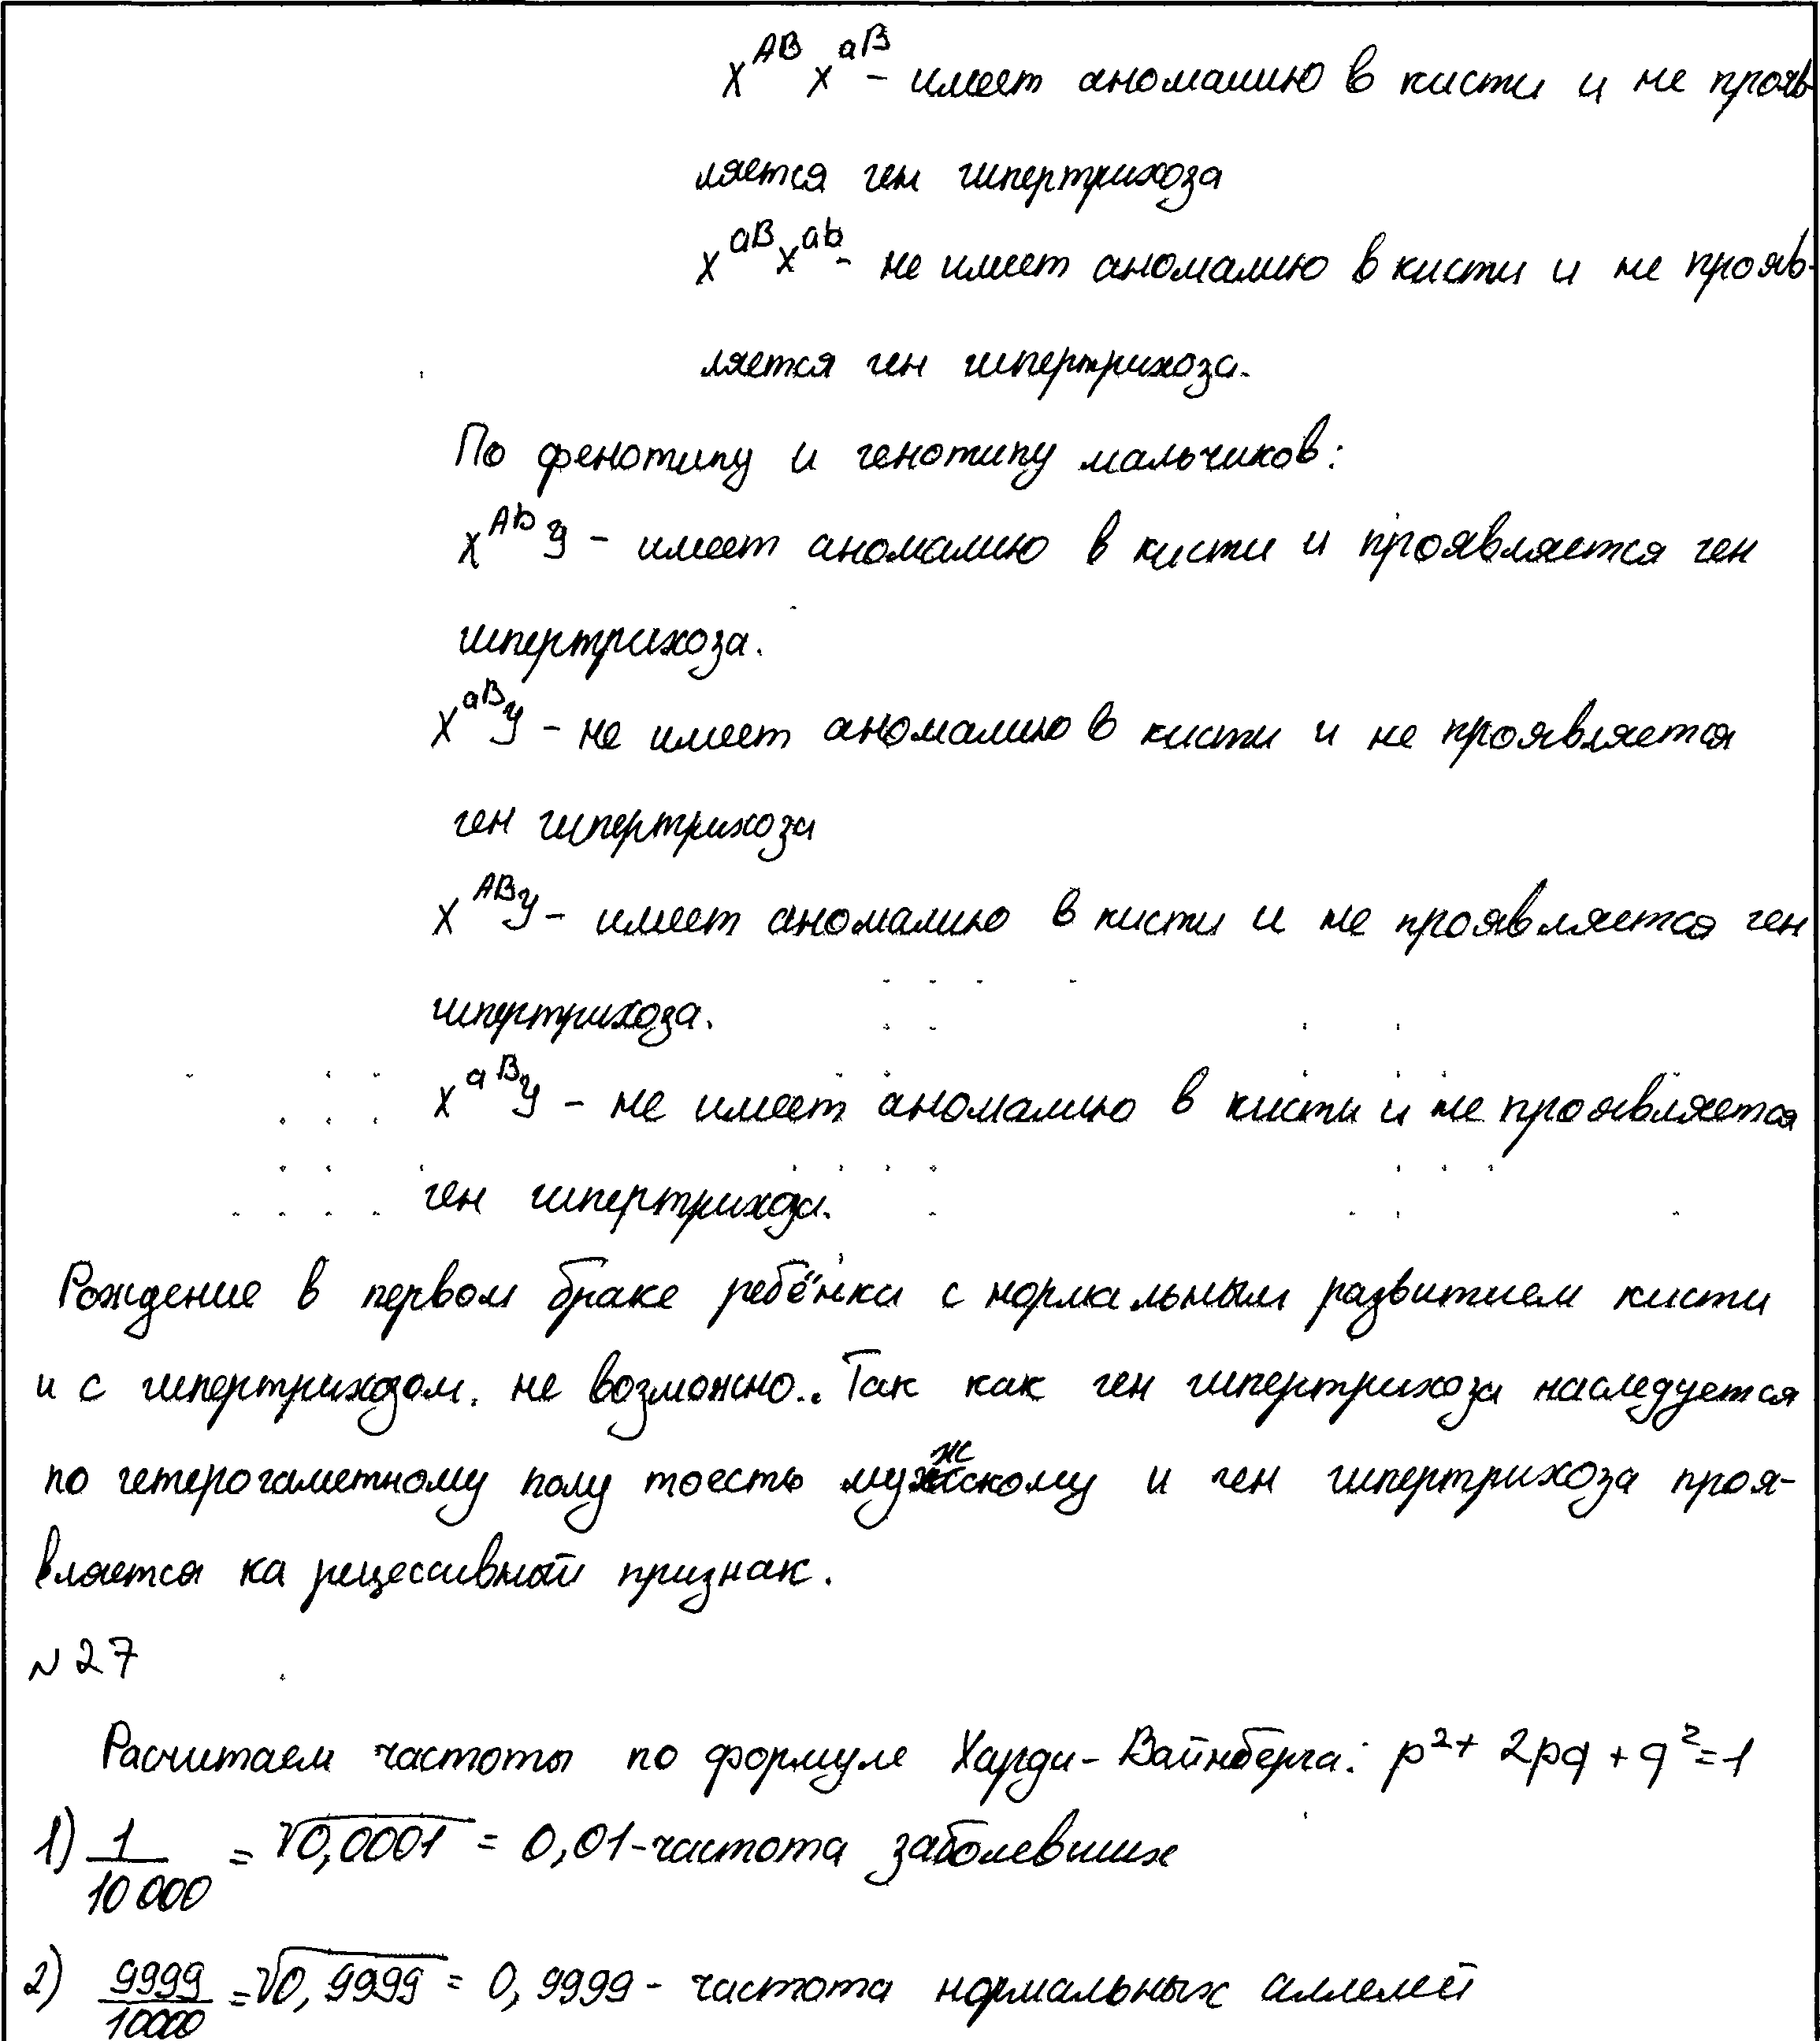 X^AB X^aB - имеет аномалию в кисти и не прояв
ляется ген гипертрихоза
X^aB X^ab - не имеет аномалию в кисти и не прояв-
ляется ген гипертрихоза.
По фенотипу и генотипу мальчиков:
X^Ab У - имеет аномалию в кисти и проявляется ген
гипертрихоза.
X^aB У - не имеет аномалию в кисти и не проявляется
ген гипертрихоза
X^AB У - имеет аномалию в кисти и не проявляется ген
гипертрихоза.
X^aB У - не имеет аномалию в кисти и не проявляется
ген гипертрихоза.
Рождение в первом браке ребёнка с нормальным развитием кисти
и с гипертрихозом. не возможно.. Так как ген гипертрихоза наследуется
по гетерогаметному полу тоесть мужскому и ген гипертрихоза проя-
вляется ка рецессивный признак.
№27
Расчитаем частоты по формуле Харди-Вайнберга: p²+ 2pq + q²=1
1) 1/10 000 = √0,0001 = 0,01-частота заболевших
2) 9999/10000 = √0,9999 = 0,9999 - частота нормальных аллелей